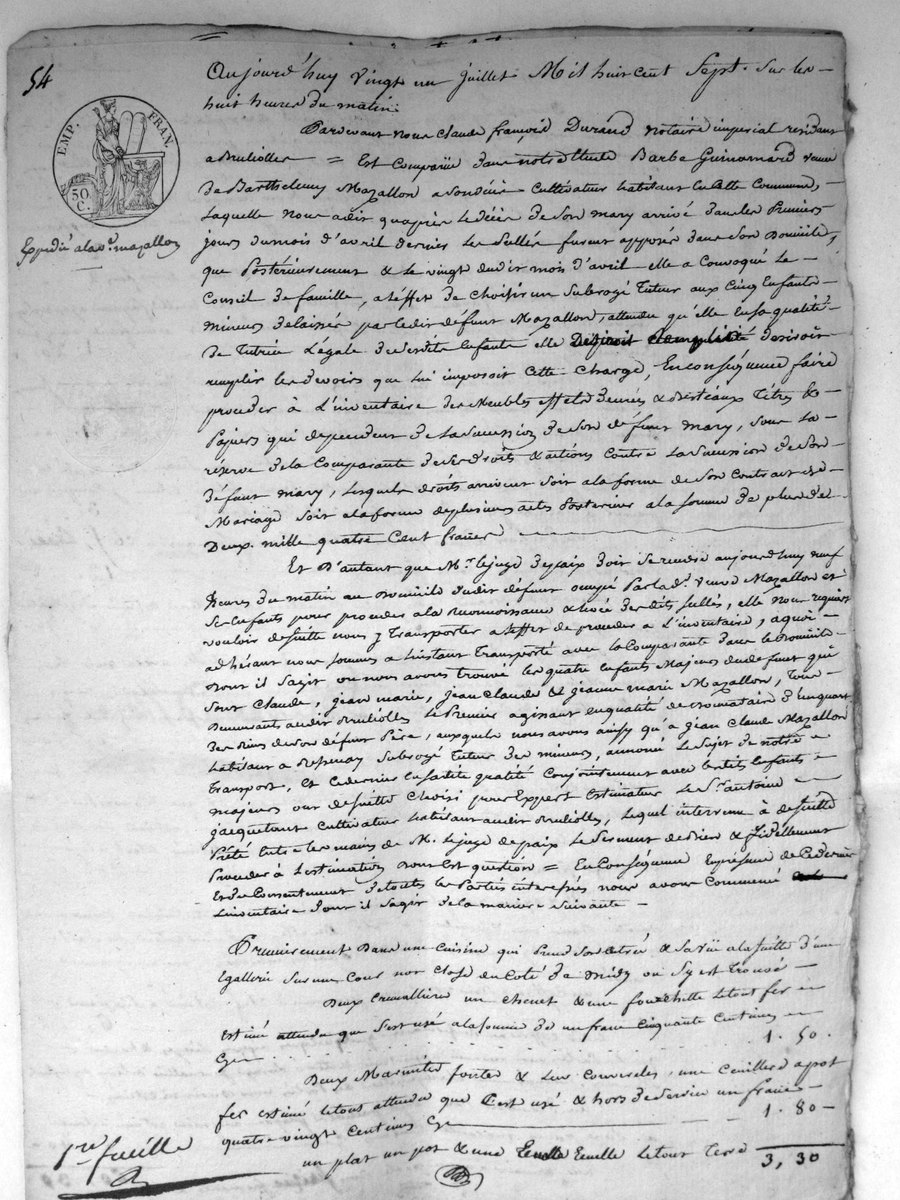 54
EMP. FRAN.
50 C.
Expédié a la ve. mazallon
Aujourd'huy vingt un juillet Mil huit cent Sept. Sur les
huit heures du matin.
Pardevant nous Claude françois Durand notaire impérial residant
a Brulliolles = Est Comparüe dans notre Etude Barbe Guinomard veuve
de Barthelemy Mazallon a son décès Cultivateur habitant en Cette Commune,
Laquelle nous a dit qu'après le décès de Son mary arrivé dans les Premiers
jours du mois d'avril dernier les Sçellés furent apposés dans Son Domicile,
que Postérieurement & le vingt dudit mois d'avril elle a Convoqué le
Conseil de famille, a l'éffet de Choisir un Subrogé Tuteur aux Cinq Enfants
mineurs délaissés par ledit défunt Mazallon, attendu qu'elle En sa qualité
de Tutrice Légale desdits Enfants elle desiroit
remplir les devoirs que lui imposoit Cette Charge, En conséquence faire
proceder à L'inventaire des Meubles effets denrées & bestiaux Titres &
Papiers qui dependent de la Succession de Son défunt mary, Sous la
réserve de la Comparante de Ses droits & actions Contre la Succession de Son
défunt mary, lesquels droits arrivent soit a la forme de Son Contrat de
Mariage soit a la forme de plusieurs actes Postérieurs a la Somme de plus de
Deux mille quatre Cent francs
Et D'autant que Mr. le juge de paix doit Se rendre aujourd'huy neuf
heures du matin au Domicile dudit défunt occupé Par lade. veuve Mazallon et
Ses Enfants pour proceder a la reconnoissance & levée desdits Sçellés, elle nous requiert
vouloir de Suitte nous y Transporter a l'effet de proceder a L'inventaire, a quoi
adhérant nous Sommes a L'instant Transporté avec la Comparante dans le Domicile
dont il S'agit ou nous avons trouvé les quatre Enfants Majeurs dudit defunt qui
Sont Claude, jean marie, jean Claude & jeanne marie Mazallon, Tous
Demeurants audit Brulliolles Le Premier agissant en qualité de Donataire d'un quart
des Biens de son défunt Père, auxquels nous avons ainsy qu'a jean Claude Mazallon
habitant a Subrogé Tuteur des mineurs, annoncé le Sujet de notre
Transport, Et Ce dernier En sa dite qualité Conjointement avec lesdits Enfants
majeurs ont de Suitte Choisi pour Expert Estimateur le Sr. antoine
jacquetant Cultivateur habitant audit Brulliolles, Lequel intervenu à de Suitte
Prété Entre les mains de M. le juge de paix le Serment de bien & fidellement
Proceder à L'estimation dont Est question = En Conséquence En présence de Ce dernier
Et du Consentement de toutes les Parties interessées nous avons Commencé
L'inventaire dont il S'agit de la maniere Suivante
Premierement Dans une Cuisine qui Prend Son Entrée & Sa vüe a la Suitte d'une
Egallerie Sur une Cour non Close du Coté de midy ou S'y est Trouvé
Deux Cremallieres un chenet & une fourchette le tout fer
estimé attendu que C'est usé a la somme de un franc Cinquante Centimes
Cy 1. 50.
Deux Marmites fontes & leur Couvercles, une Cuillere a pot
fer estimé le tout attendu que C'est usé & hors de Service un franc
quatre vingt Centimes Cy 1. 80
un plat un pot & une Ecuelle le tout Terre
3, 30
1re feuille